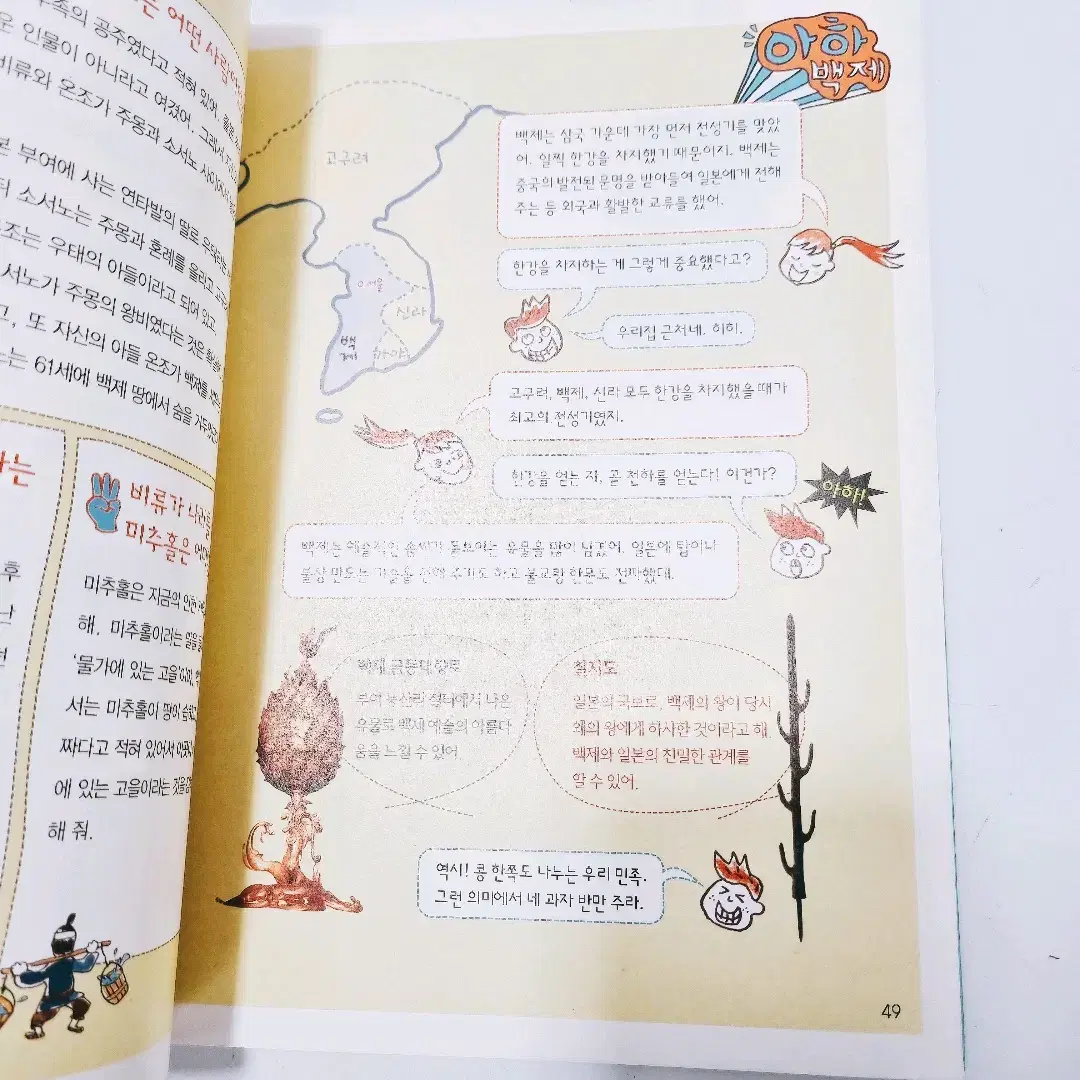 는 어떤 사람
부족의 공주였다고 적혀 있어.
운 인물이 아니라고 여겼어. 그래서
비류와 온조가 주몽과 소서노 사이
본 부여에 사는 연타발의 딸로
뒤 소서노는 주몽과 혼례를 올리고
조는 우태의 아들이라고 되어 있고
서노가 주몽의 왕비였다는 것은
고, 또 자신의 아들 온조가 백제를
노는 61세에 백제 땅에서 숨을
라는
후
난
비류가 나라를
미추홀은
미추홀은 지금의 인천
해. 미추홀이라는
'물가에 있는 고을'이며,
서는 미추홀이 땅이
짜다고 적혀 있어서
에 있는 고을이라는 것을
해 줘.
아하
백제
고구려
서울
신라
백제
가야
백제는 삼국 가운데 가장 먼저 전성기를 맞았
어. 일찍 한강을 차지했기 때문이지. 백제는
중국의 발전된 문명을 받아들여 일본에게 전해
주는 등 외국과 활발한 교류를 했어.
한강을 차지하는 게 그렇게 중요했다고?
우리집 근처네. 히히.
고구려, 백제, 신라 모두 한강을 차지했을 때가
최고의 전성기였지.
한강을 얻는 자, 꼭 천하를 얻는다! 이건가?
아하!
백제는 예술적인 솜씨가 돋보이는 유물을 많이 남겼어. 일본에 탑이나
불상 만드는 기술을 전해 주기도 하고 불교랑 한문도 전파했대.
백제 금동대향로
부여 능산리 절터에서 나온
유물로 백제 예술의 아름다
움을 느낄 수 있어.
칠지도
일본의 국보로, 백제의 왕이 당시
왜의 왕에게 하사한 것이라고 해.
백제와 일본의 친밀한 관계를
알 수 있어.
역시! 콩 한쪽도 나누는 우리 민족.
그런 의미에서 네 과자 반만 주라.
49